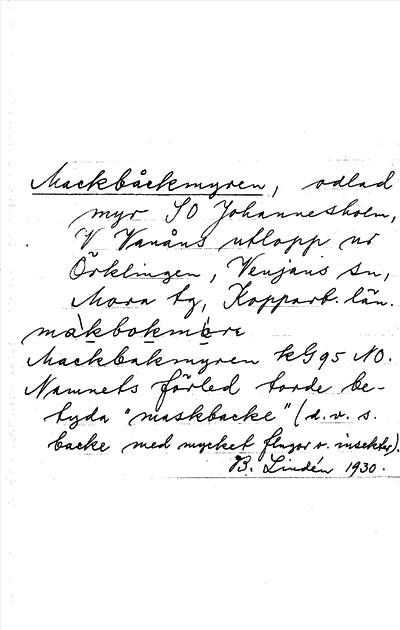 Mackbåckmyren, odlad
myr SO Johannesholm,
V Vanåns utlopp ur
Örklingen, Venjans sn,
Mora tg, Kopparb. län.
makbokmỳre
Mackbakmyren kG95 NO.
Namnets förled torde be-
tyda "maskbacke" (d.v.s.
backe med mycket flugor o. insekter).
B. Lindén 1930.